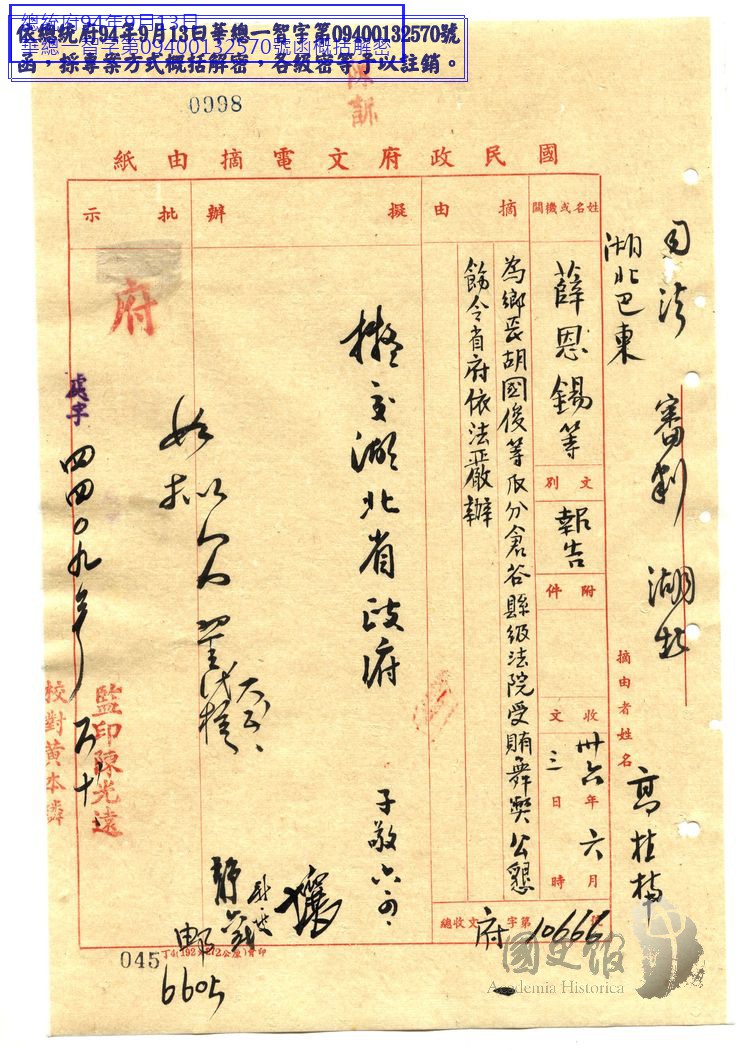 總統府94年9月13日
華總一智字第09400132570號函概括解密
依總統府94年9月13日華總一智字第09400132570號
函，採專案方式概括解密，各級密等予以註銷。
0998
國民政府文電摘由紙
司法 審判 湖北
湖北巴東
摘由者姓名
高桂樟
姓名或機關
薛恩錫等
文別
報告
附件
收文
卅六年六月三日時
總收文府字第10666號
摘由
為鄉長胡國俊等瓜分倉谷縣級法院受賄舞弊公懇
飭令省府依法嚴辦
擬辦
擬交湖北省政府
子敬六、四、
批示
如擬
府
處字
四四〇九號
監印陳光遠
校對黃本璘
郵
6605
045
國史館
Academia Historica